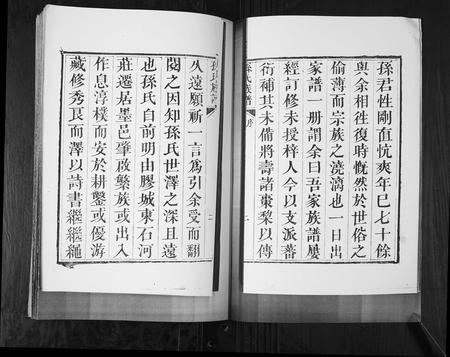 孫君性剛直忼爽年已七十餘
與余相徃復時慨然於世俗之
偷薄而宗族之澆漓也一日出
家譜一冊謂余曰吾家族譜屢
經訂修未授梓人今以支派蕃
衍補其未備將壽諸棗棃以傳
孫氏族譜 序 一
孫氏族譜 二
久遠願祈一言爲引余受而翻
閱之因知孫氏世澤之深且遠
也孫氏自前明由膠城東石河
莊遷居墨邑肇啟繁族或出入
作息淳樸而安於耕鑿或優游
藏修秀艮而澤以詩書繼繼繩